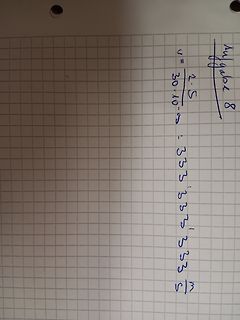 Aufgabe 8
v = \frac{2 \cdot 5}{30 \cdot 10^{-9}} = 333 333 333 \frac{m}{s}